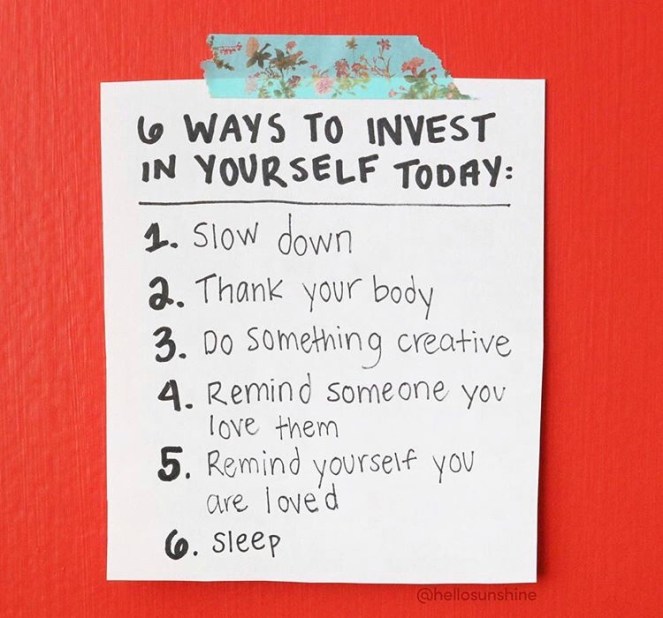 6 WAYS TO INVEST
IN YOURSELF TODAY:
1. Slow down
2. Thank your body
3. Do something creative
4. Remind someone you
love them
5. Remind yourself you
are loved
6. sleep
@hellosunshine